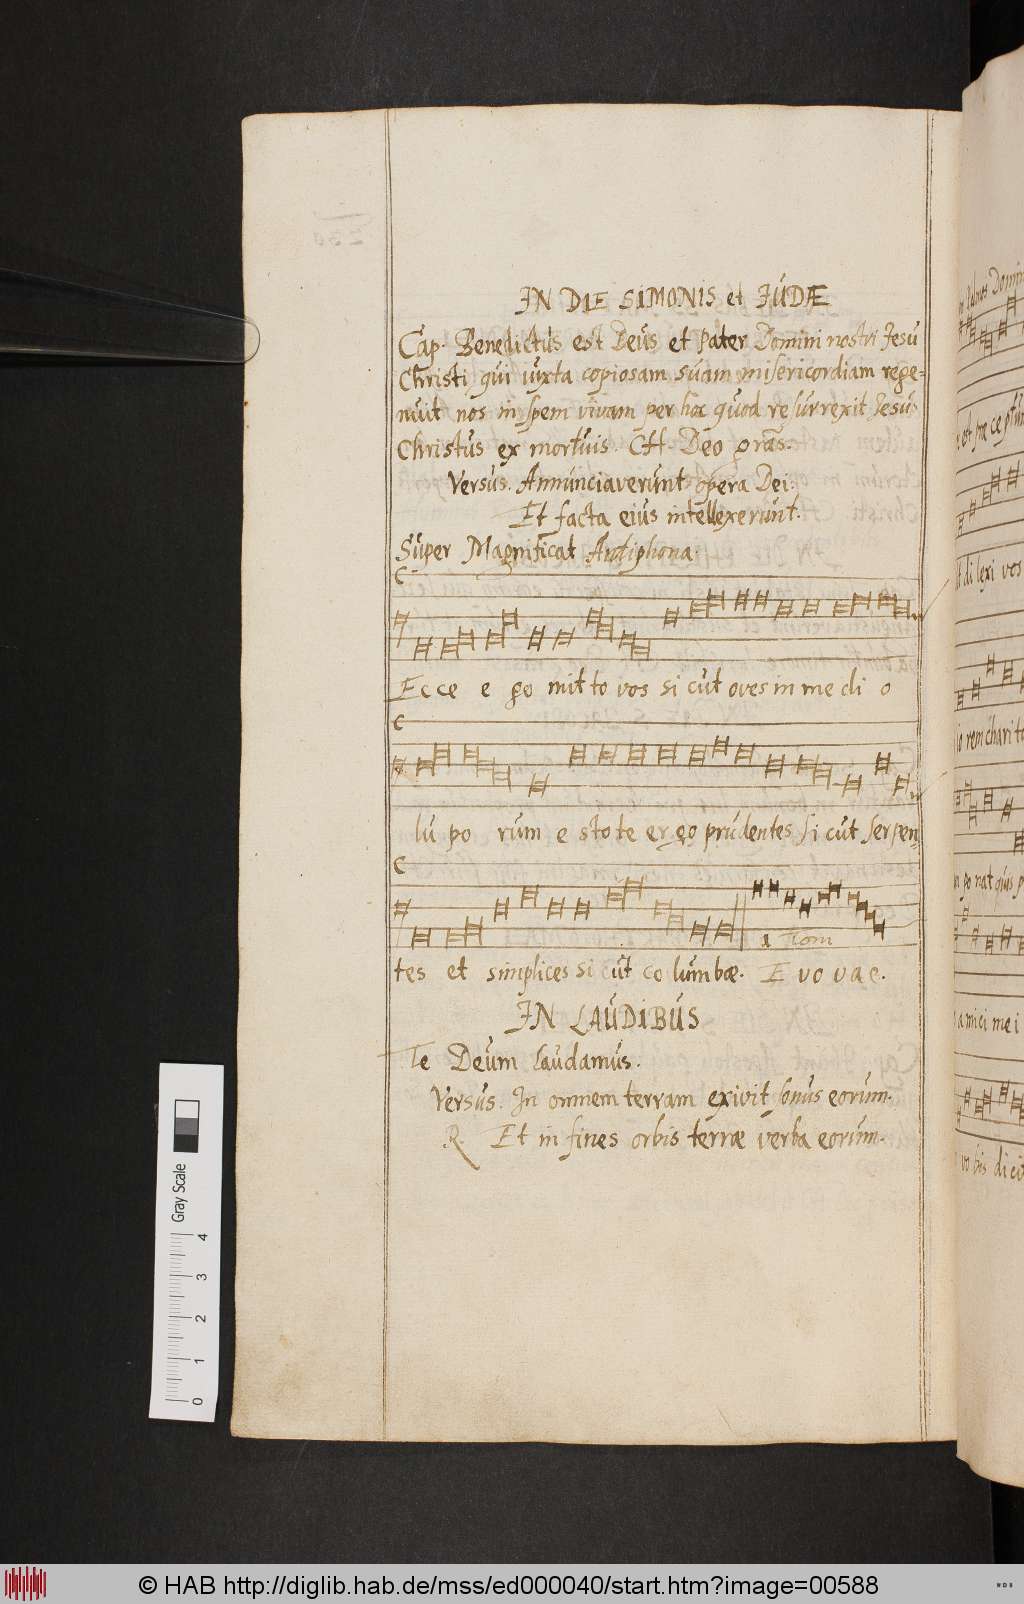 IN DIE SIMONIS et IUDÆ
Cap. Benedictus est Deus et Pater Domini nostri Jesu
Christi qui iuxta copiosam suam misericordiam rege=
nuit nos in spem vivam per hoc quod resurrexit Jesus
Christus ex mortuis. CH. Deo gras.
Versus. Annunciaverunt opera Dei.
Et facta eius intellexerunt.
Super Magnificat Antiphona.
Ecce e go mitto vos si cut oves in me di o
lu po rum e sto te er go prudentes si cut serpen
1 Tom
tes et simplices si cut co lumbæ. E vo vae.
IN LAUDIBUS
Te Deum laudamus.
Versus. In omnem terram exivit sonus eorum.
R. Et in fines orbis terræ verba eorum.
est præ ceptum
di lexi vos
po nat quis
amici me i
vo bis
Gray Scale
0 1 2 3 4
© HAB http://diglib.hab.de/mss/ed000040/start.htm?image=00588